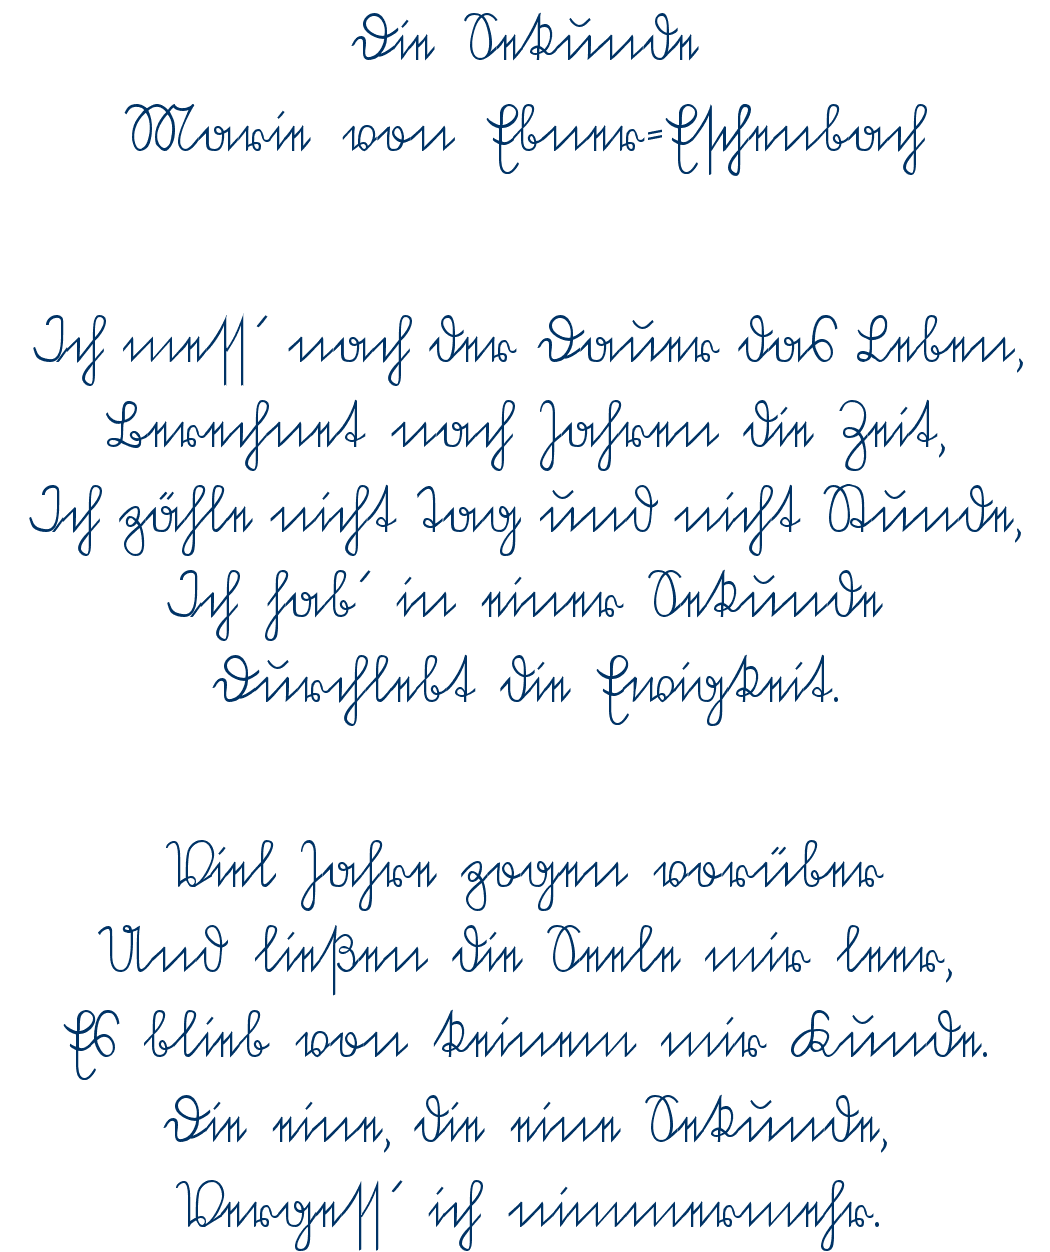 Die Sekunde
Marie von Ebner=Eschenbach
Ich mess´ nach der Dauer das Leben,
Berechnet nach Jahren die Zeit,
Ich zähle nicht Tag und nicht Stunde,
Ich hab´ in einer Sekunde
Durchlebt die Ewigkeit.
Viel Jahre zogen vorüber
Und ließen die Seele mir leer,
Es blieb von keinem mir Kunde.
Die eine, die eine Sekunde,
Vergess´ ich nimmermehr.